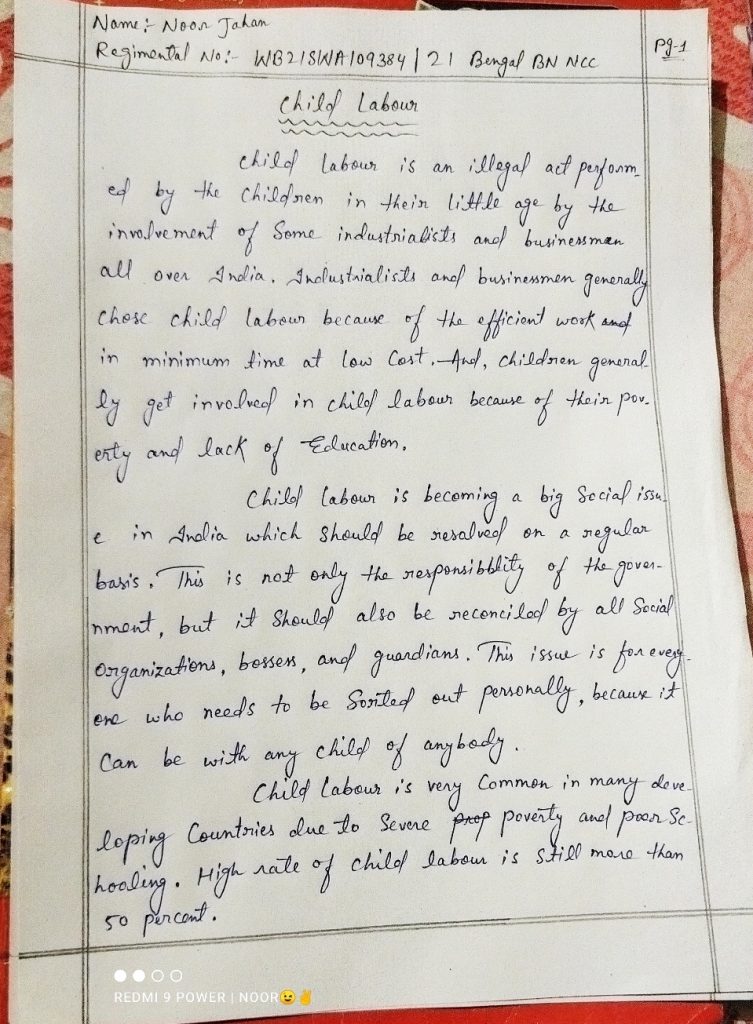 Name:- Noor Jahan
Regimental No:- WB21SWA109384/21 Bengal BN NCC
Pg-1
Child Labour
Child labour is an illegal act perform-
ed by the children in their little age by the
involvement of Some industrialists and businessman
all over India. Industrialists and businessmen generally
chose child labour because of the efficient work and
in minimum time at low cost. And, children general-
ly get involved in child labour because of their pov-
erty and lack of Education.
Child labour is becoming a big Social issu-
e in India which should be resolved on a regular
basis. This is not only the responsibblity of the gover-
nment, but it Should also be reconciled by all Social
Organizations, bossers, and guardians. This issue is for every-
one who needs to be Sorited out personally, because it
Can be with any child of anybody.
Child Labour is very Common in many deve-
loping Countries due to Severe prop poverty and poor Sc-
hooling. High rate of child labour is still more than
50 percent.
REDMI 9 POWER | NOOR😉✌